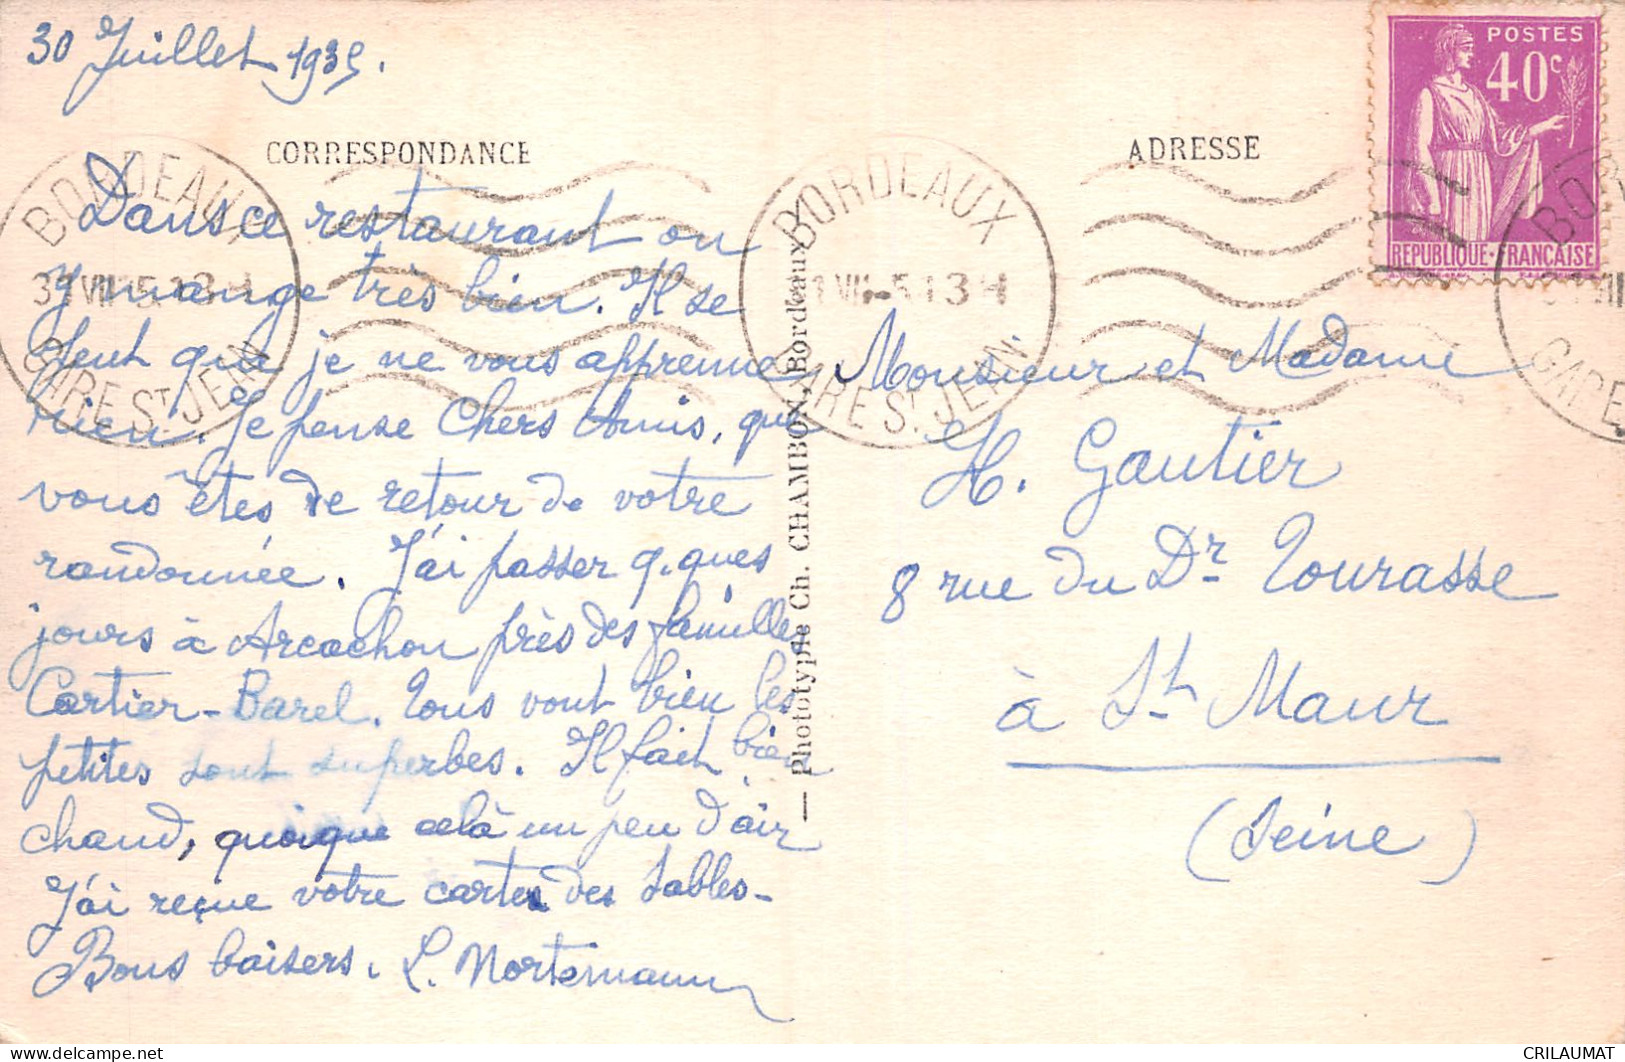 30 Juillet 1935.
CORRESPONDANCE
Dans ce restaurant on
y mange très bien. Il se
peut que je ne vous apprenne
rien. Je pense Chers Amis, que
vous êtes de retour de votre
randonnée. J'ai passer q. ques
jours à Arcachon près des familles
Cartier-Barel. Tous vont bien les
petites sont superbes. Il fait bien
chaud, quoique celà un peu d'air
J'ai reçue votre carte des Sables-
Bons baisers. L. Mortemann
— Phototypie Ch. CHAMBON, Bordeaux
ADRESSE
POSTES
40c
REPUBLIQUE-FRANÇAISE
BORDEAUX
GARE ST JEAN
BORDEAUX
13 H
GARE ST JEAN
Monsieur et Madame
H. Gautier
8 rue du Dr Tourasse
à St Maur
(Seine)
CRILAUMAT